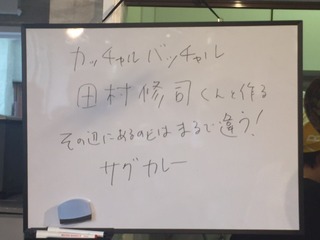 カッチャルバッチャル
田村修司くんと作る
その辺にあるのとはまるで違う!
サグカレー